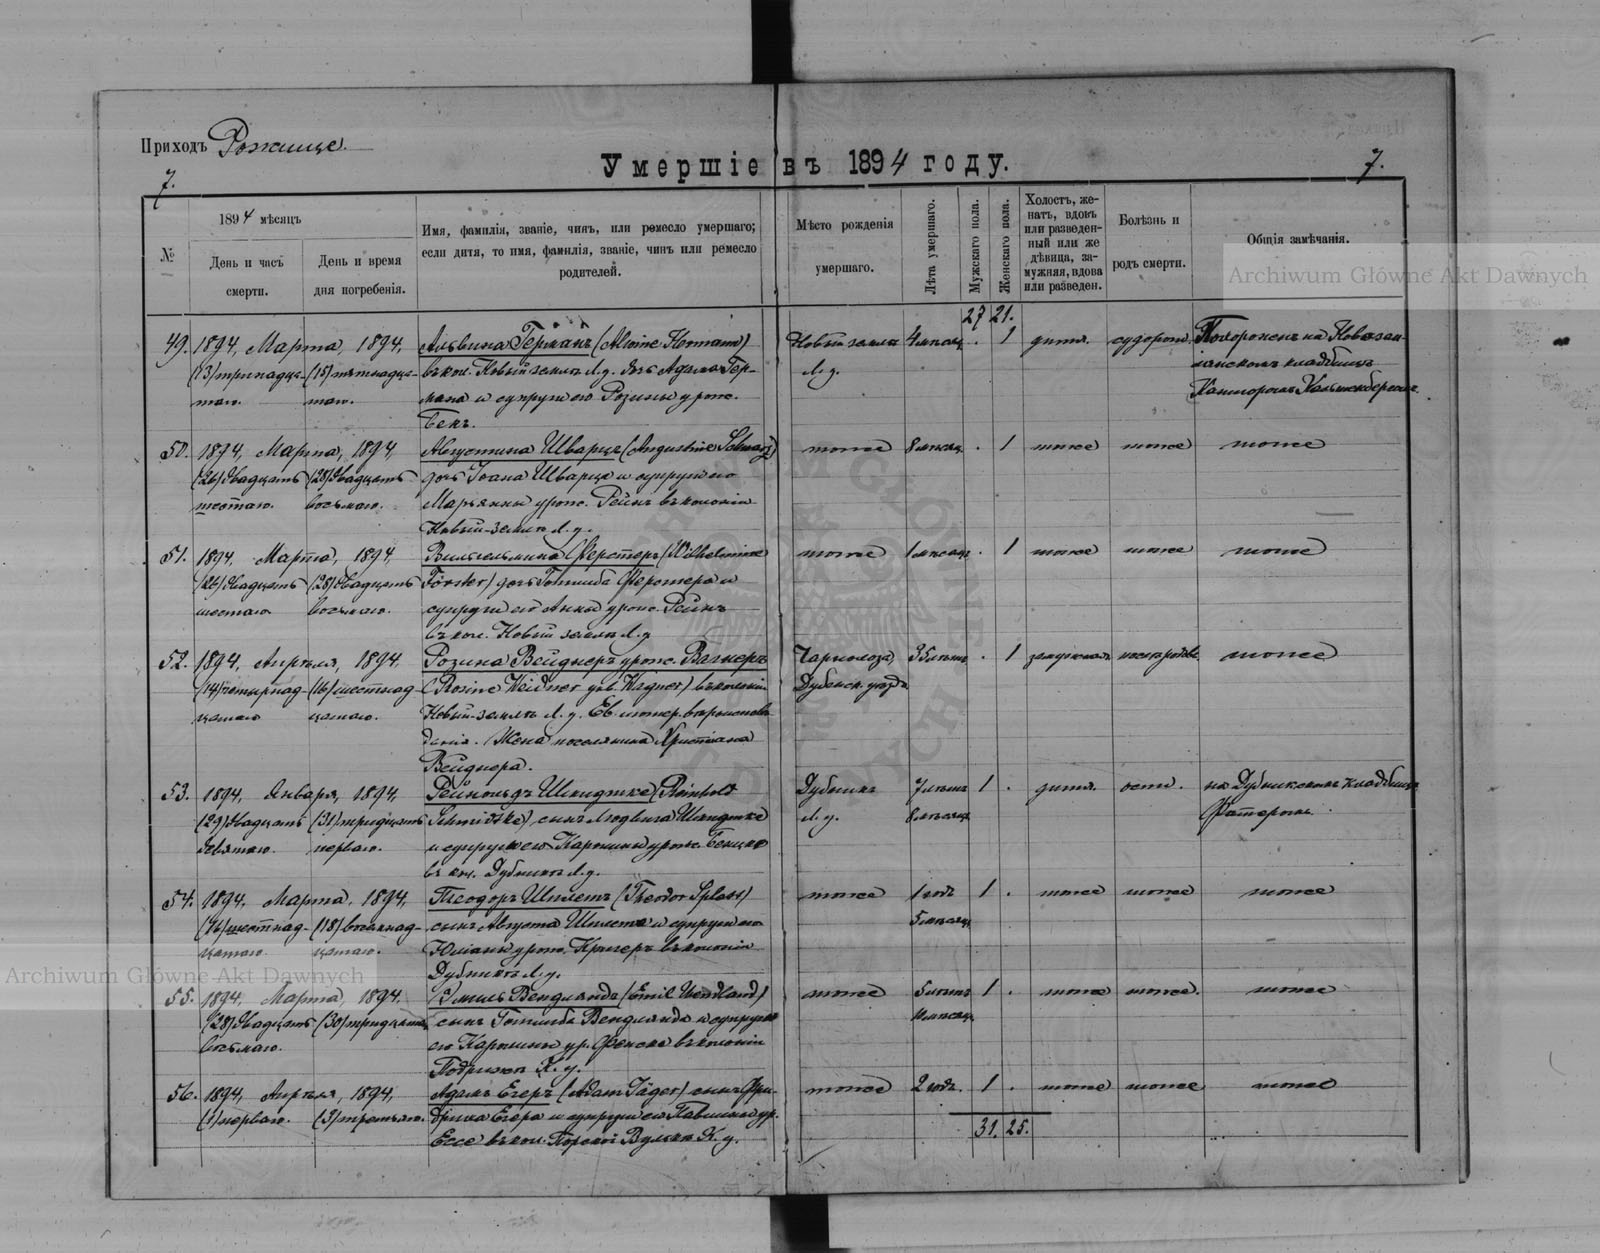 Приходъ Рожище.
Умершіе въ 1894 году.
7.
7.
№
1894 мѣсяцъ
День и часъ смерти.
День и время дня погребенія.
Имя, фамилія, званіе, чинъ, или ремесло умершаго;
если дитя, то имя, фамилія, званіе, чинъ или ремесло
родителей.
Мѣсто рожденія
умершаго.
Лѣта умершаго.
Мужскаго пола.
Женскаго пола.
Холостъ, же-
натъ, вдовъ
или разведен-
ный или же
дѣвица, за-
мужняя, вдова
или разведен.
Болѣзнь и
родъ смерти.
Общія замѣчанія.
Archiwum Główne Akt Dawnych
27 21.
49. 1894, Марта, 1894, Альвина Герман (Alvine Hermann) Новый земля 4 мѣсяц. . 1 дитя. судорог. Похороненъ на Новозем-
(13) тринадца- (15) пятнадца- въ кол. Новый земля Л. у. дочь Адама Гер- Л. у.
таго. таго. мана и супруги его Розины урож.
Бек.
50. 1894, Марта, 1894, Августина Шварцъ (Augustine Schwarz) тоже 8 мѣсяц. . 1 тоже тоже тоже
(26) двадцать (28) двадцать дочь Іоана Шварца и супруги его
шестаго. восьмаго. Марьянны урож. Рейнъ въ колоніи
Новый-земля Л. у.
51. 1894, Марта, 1894, Вильгельмина Ферстеръ (Wilhelmine тоже 1 мѣсяц. . 1 тоже тоже тоже
(26) двадцать (28) двадцать Förster) дочь Готлиба Ферстера и
шестаго восьмаго. супруги его Анны урож. Рейнъ
въ кол. Новый земля Л. у.
52. 1894, Апрѣля, 1894. Розина Вейднеръ урож. Вагнеръ 35 лѣтъ . 1 замужняя тоже
(14) четырнад- (16) шестнад- (Rosine Weidner geb. Wagner) въ колоніи Дубенск. уѣзда
цатаго цатаго. Новый-земля Л. у. Ев. лютер. вѣроисповѣ-
данія. Жена поселянина Христіана
Вейднера.
53. 1894, Января, 1894, Рейнольдъ Шмидтке (Reinhold Дубникъ 7 лѣтъ 1 . дитя. оспы. на Дубникскомъ кладбищѣ
(29) двадцать (31) тридцать Schmidtke), сынъ Людвига Шмидтке Л. у. 8 мѣсяц.
девятаго. перваго. и супруги его Каролины урож.
въ кол. Дубникъ Л. у.
54. 1894, Марта, 1894, Теодоръ Шплетъ (Theodor Splett) тоже 1 годъ 1 . тоже тоже тоже
(16) шестнад- (18) восемнад- сынъ Августа Шплета и супруги его 5 мѣсяц.
цатаго. цатаго. Юліаны урож. Кригеръ въ колоніи
Дубникъ Л. у.
Archiwum Główne Akt Dawnych
55. 1894, Марта, 1894. Эмиль Вендландъ (Emil Wendland) тоже 5 лѣтъ 1 . тоже тоже. тоже
(28) двадцать (30) тридцатаго сынъ Готлиба Вендланда и супруги
восьмаго. его Каролины ур. Фенске въ колоніи
56. 1894, Апрѣля, 1894, Адамъ Егеръ (Adam Jäger) сынъ Фри- тоже 2 года. 1 . тоже тоже тоже
(1) перваго. (3) третьяго. дриха Егера и супруги его Павлины ур.
Ессе въ кол.
31. 25.